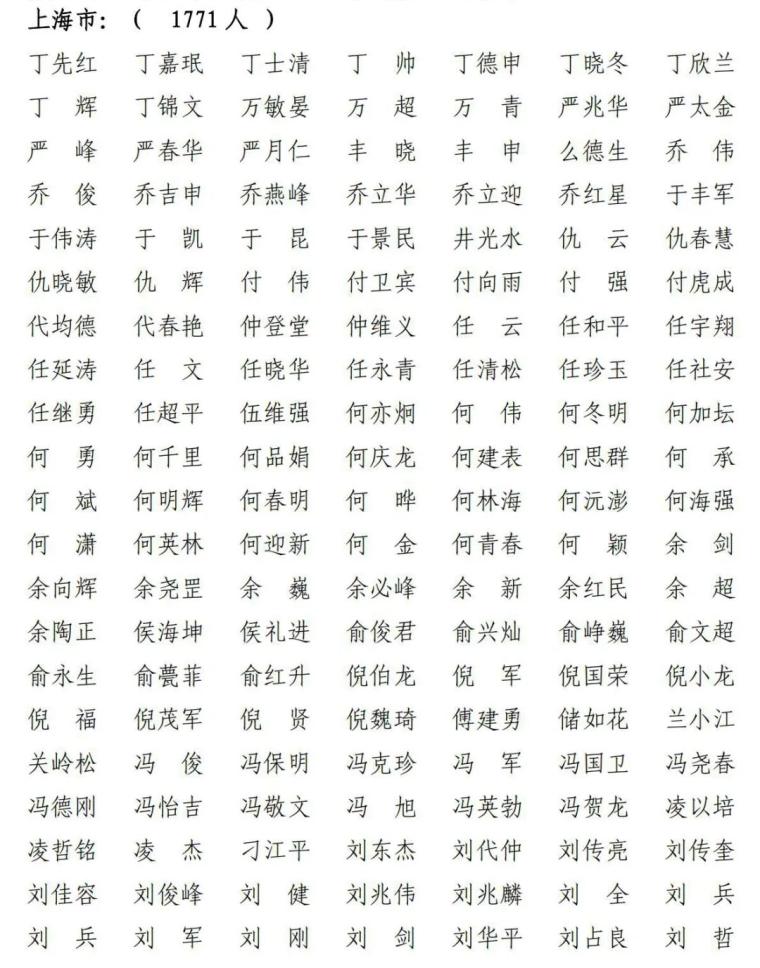 上海市：（ 1771人 ）
丁先红 丁嘉珉 丁士清 丁 帅 丁德申 丁晓冬 丁欣兰
丁 辉 丁锦文 万敏晏 万 超 万 青 严兆华 严太金
严 峰 严春华 严月仁 丰 晓 丰 申 么德生 乔 伟
乔 俊 乔吉申 乔燕峰 乔立华 乔立迎 乔红星 于丰军
于伟涛 于 凯 于 昆 于景民 井光水 仇 云 仇春慧
仇晓敏 仇 辉 付 伟 付卫宾 付向雨 付 强 付虎成
代均德 代春艳 仲登堂 仲维义 任 云 任和平 任宇翔
任延涛 任 文 任晓华 任永青 任清松 任珍玉 任社安
任继勇 任超平 伍维强 何亦炯 何 伟 何冬明 何加坛
何 勇 何千里 何品娟 何庆龙 何建表 何思群 何 承
何 斌 何明辉 何春明 何 晔 何林海 何沅澎 何海强
何 潇 何英林 何迎新 何 金 何青春 何 颖 余 剑
余向辉 余尧罡 余 巍 余必峰 余 新 余红民 余 超
余陶正 侯海坤 侯礼进 俞俊君 俞兴灿 俞峥巍 俞文超
俞永生 俞甍菲 俞红升 倪伯龙 倪 军 倪国荣 倪小龙
倪 福 倪茂军 倪 贤 倪魏琦 傅建勇 储如花 兰小江
关岭松 冯 俊 冯保明 冯克珍 冯 军 冯国卫 冯尧春
冯德刚 冯怡吉 冯敬文 冯 旭 冯英勃 冯贺龙 凌以培
凌哲铭 凌 杰 刁江平 刘东杰 刘代仲 刘传亮 刘传奎
刘佳容 刘俊峰 刘 健 刘兆伟 刘兆麟 刘 全 刘 兵
刘 兵 刘 军 刘 刚 刘 剑 刘华平 刘占良 刘 哲